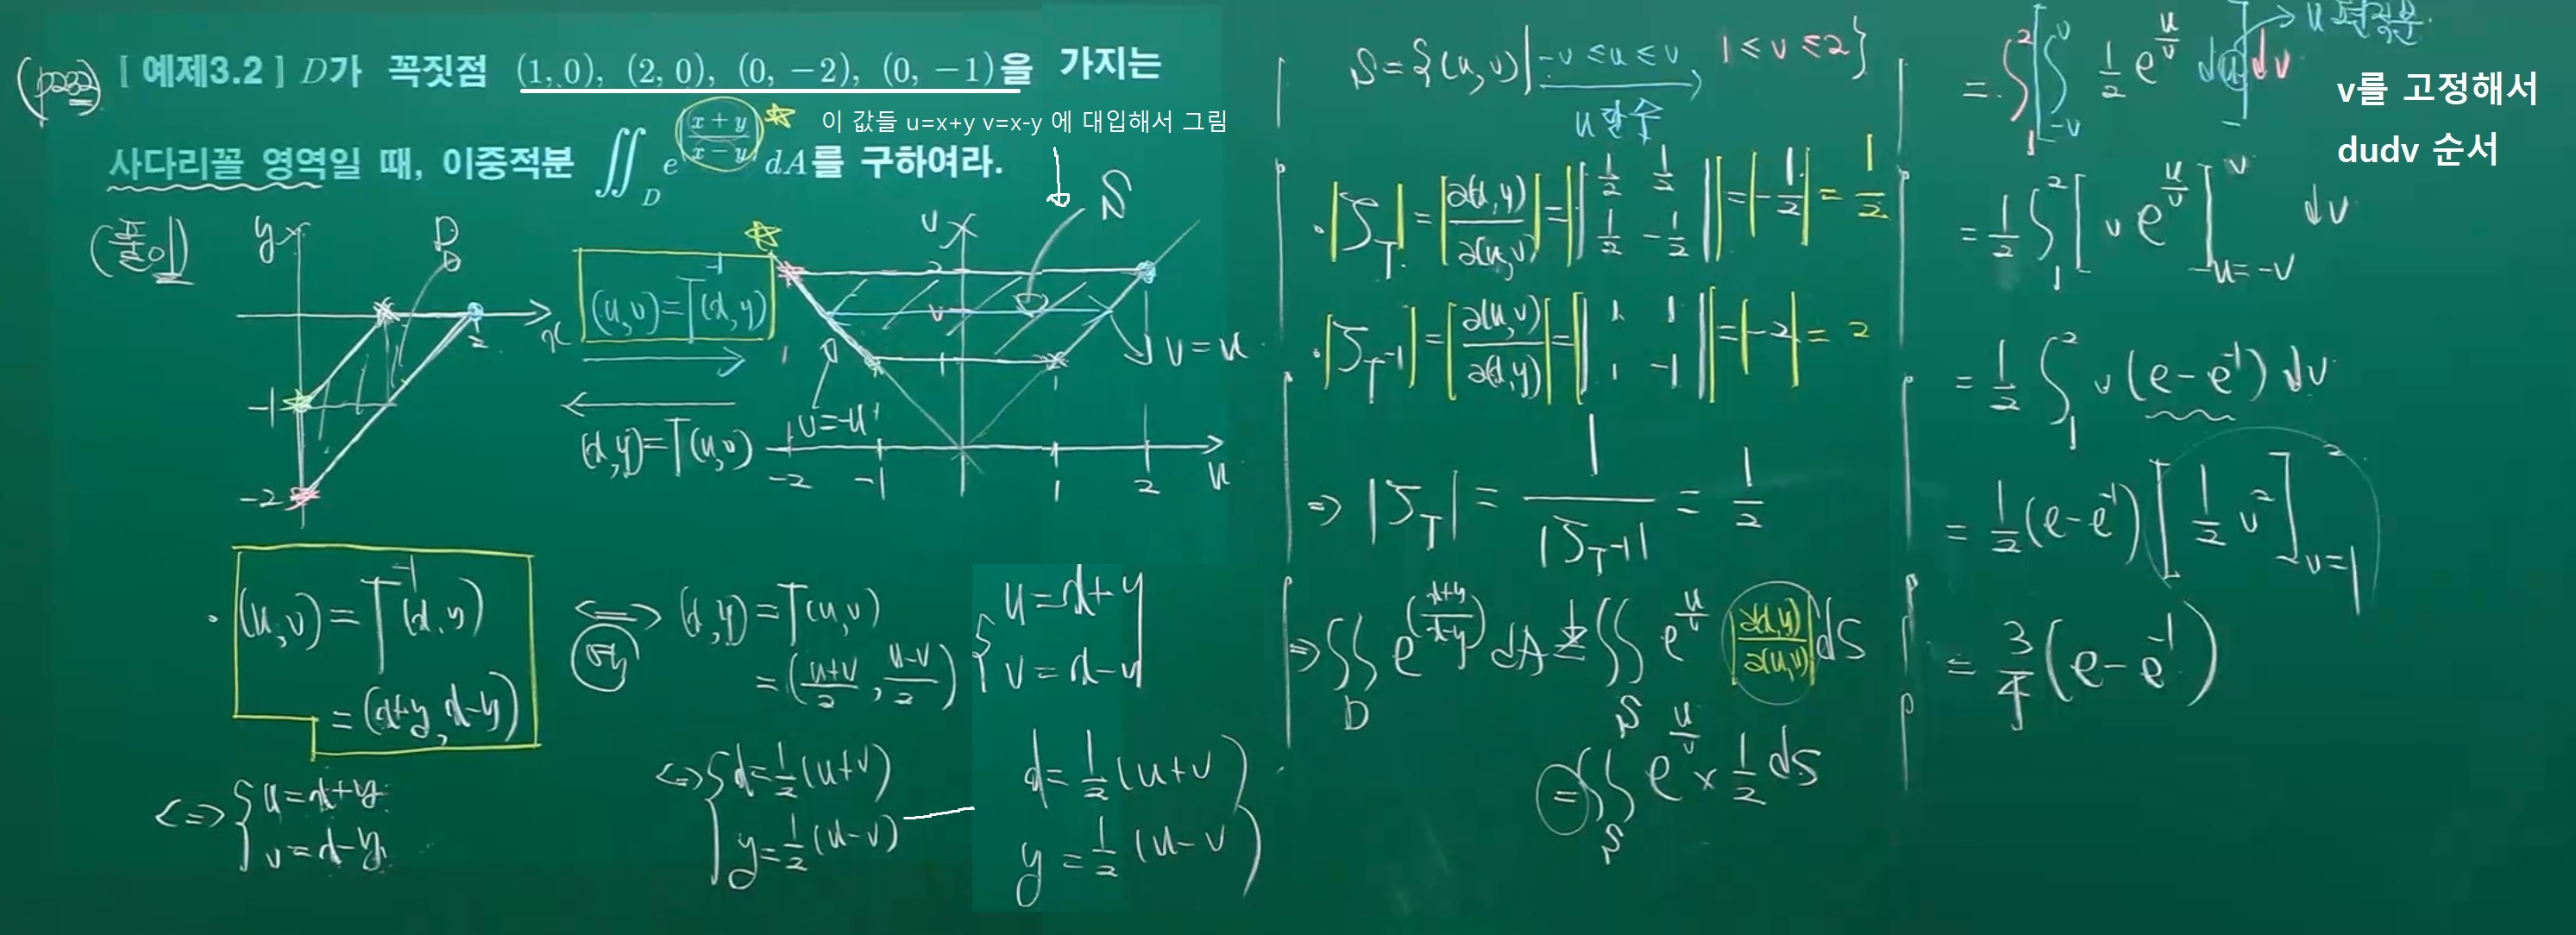 (p232) [ 예제3.2 ] D가 꼭짓점 (1, 0), (2, 0), (0, −2), (0, −1)을 가지는
사다리꼴 영역일 때, 이중적분 ∬_D e^((x+y)/(x−y)) dA를 구하여라.
이 값들 u=x+y v=x-y 에 대입해서 그림
(풀이)
y
D
x
2
-1
-2
(u,v)=T^-1(x,y)
(x,y)=T(u,v)
S
v
2
v
1
1
v=u
v=-u
-2 -1 1 2 u
· (u,v) = T^-1(x,y)
= (x+y, x-y)
<=> { u=x+y
v=x-y
<=> (x,y) = T(u,v)
= ( (u+v)/2 , (u-v)/2 )
<=> { x=1/2(u+v)
y=1/2(u-v)
{ u=x+y
v=x-v
x=1/2(u+v)
y=1/2(u-v)
S={(u,v)| -v ≤u ≤ v 1 ≤ v ≤2}
u 단순
· |J_T| = |∂(x,y)/∂(u,v)| = || 1/2 1/2 1/2 -1/2 || = |-1/2| = 1/2
· |J_T-1| = |∂(u,v)/∂(x,y)| = || 1 1 1 -1 || = |-2| = 2
=> |J_T| = 1/|J_T-1| = 1/2
=> ∬_D e^((x+y)/(x-y)) dA = ∬_S e^(u/v) |∂(x,y)/∂(u,v)| dS
= ∬_S e^(u/v) × 1/2 dS
= ∫_1^2 [ ∫_-v^v 1/2 e^(u/v) du ] dv
u 편적분
v를 고정해서
dudv 순서
= 1/2 ∫_1^2 [ v e^(u/v) ]_u=-v^v dv
= 1/2 ∫_1^2 v (e-e^-1) dv
= 1/2 (e-e^-1) [ 1/2 v^2 ]_v=1^2
= 3/4 (e-e^-1)